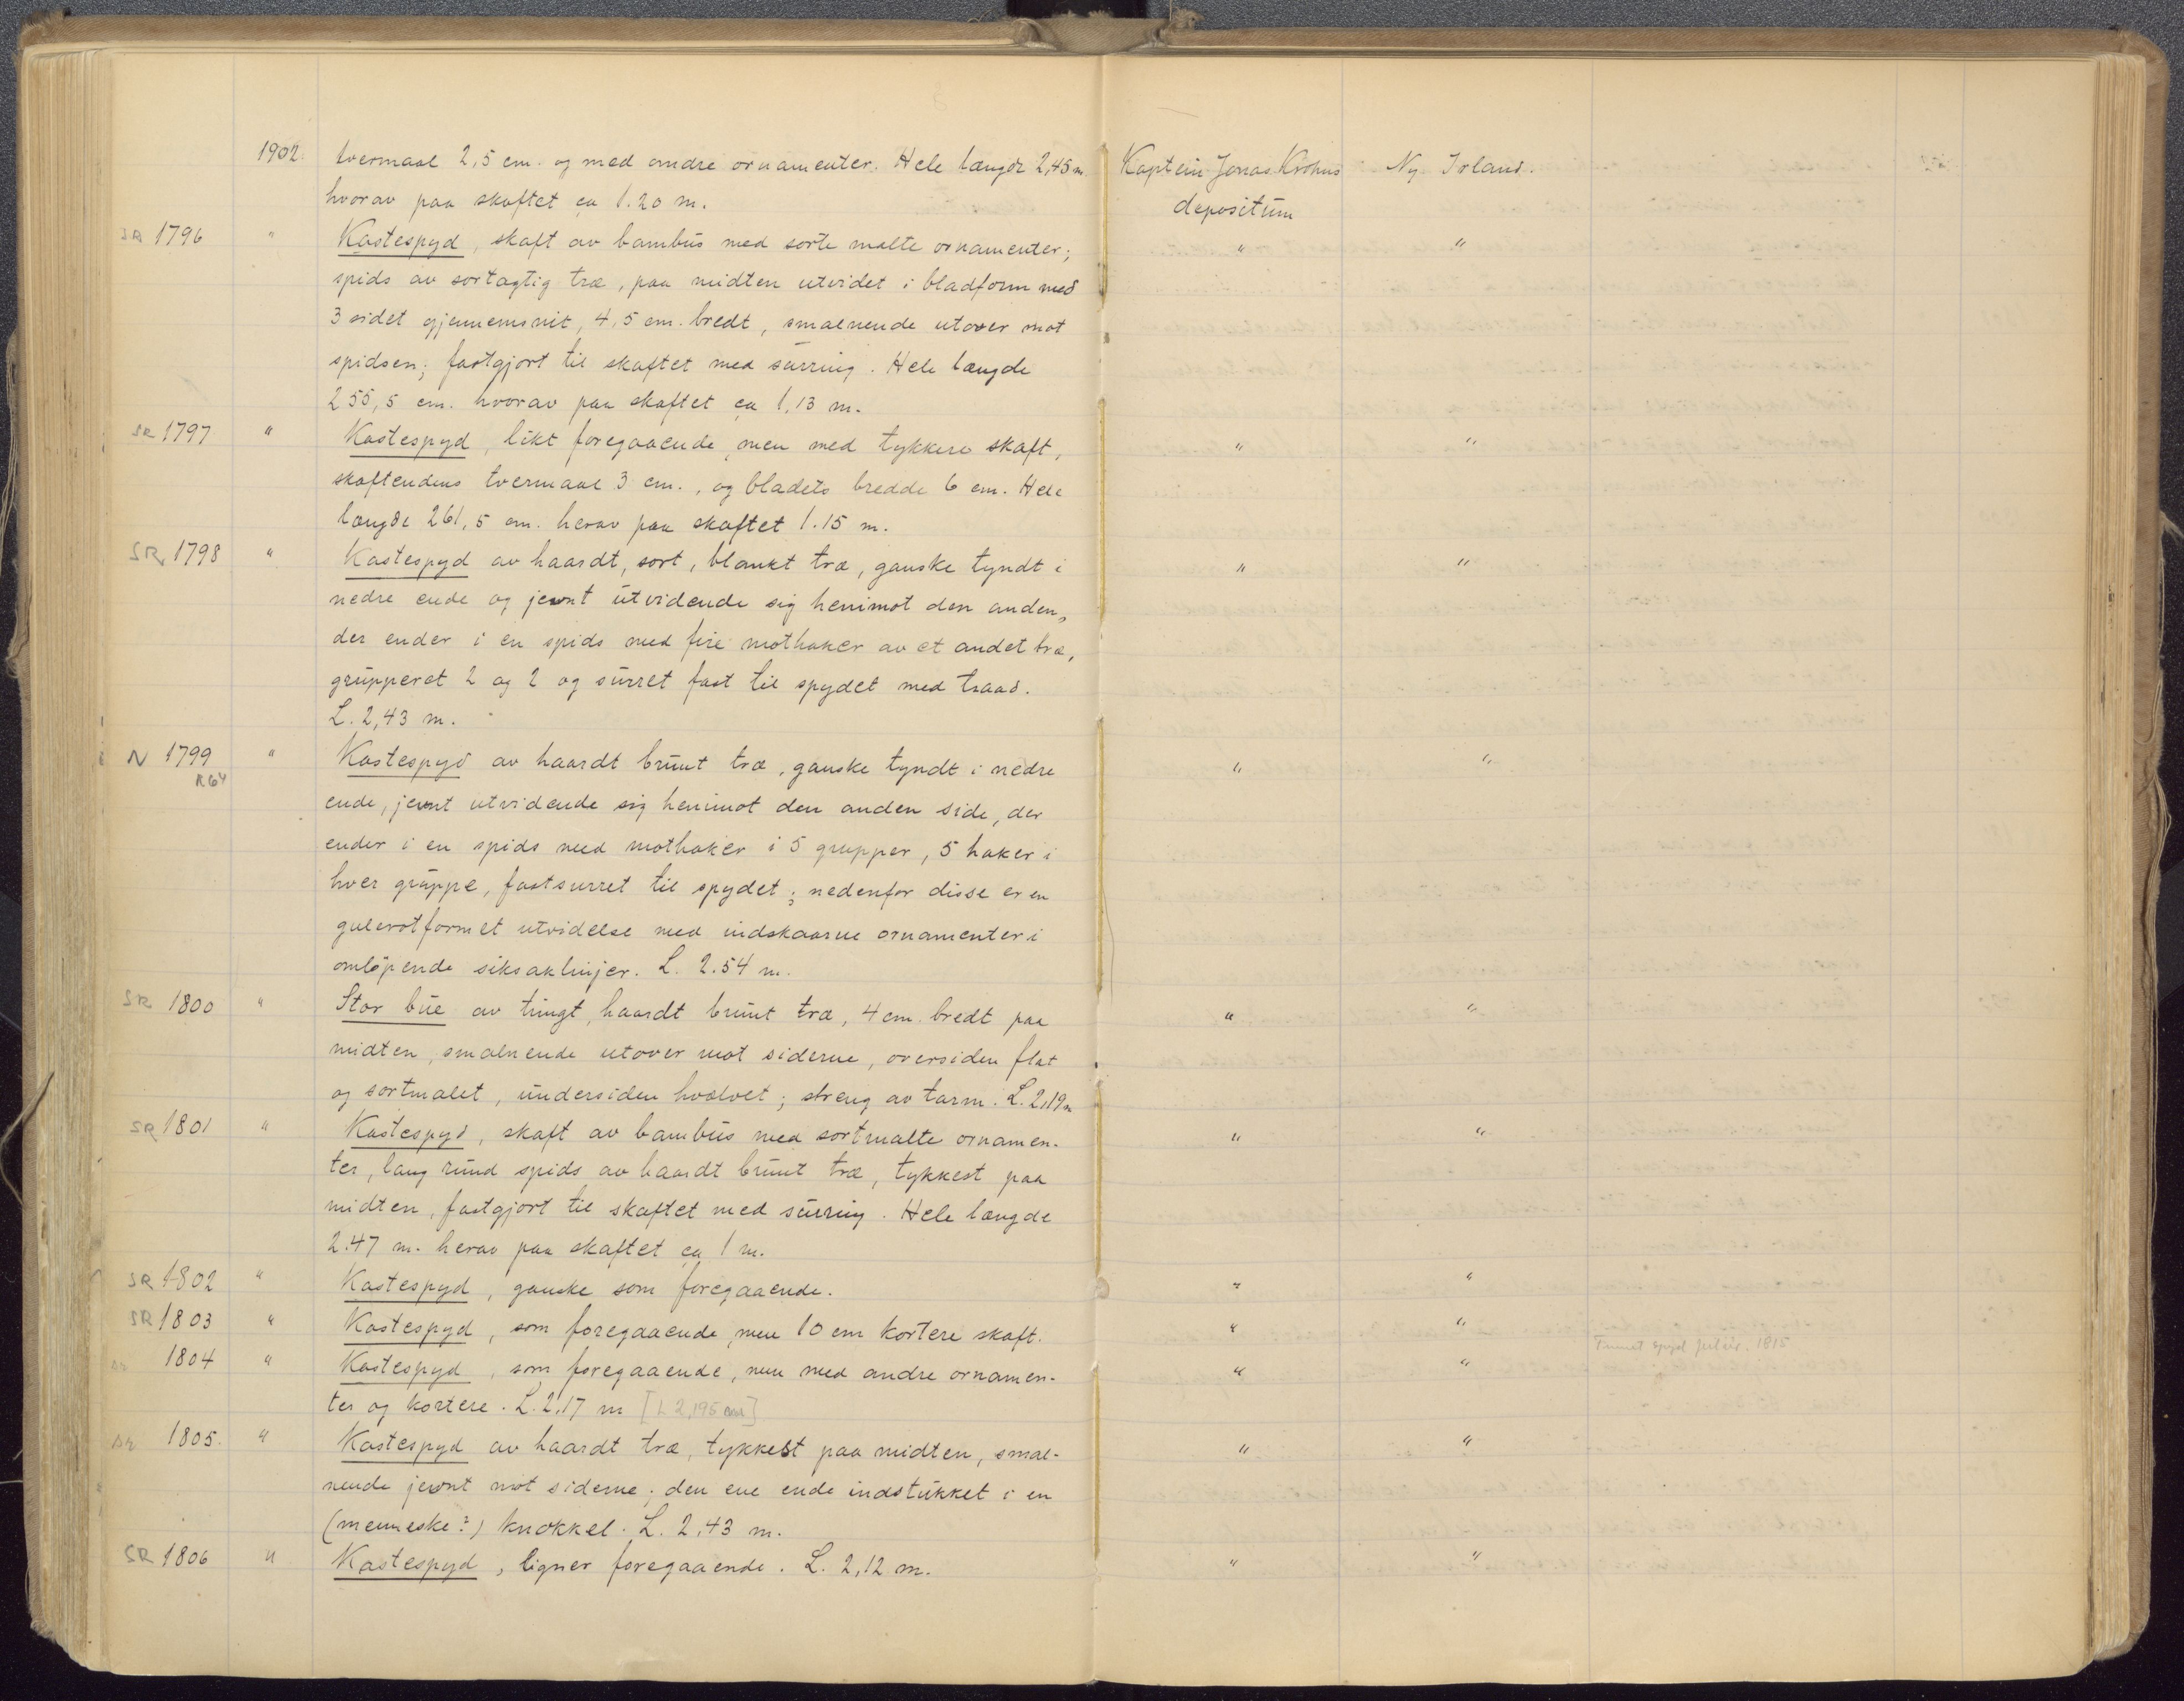 1902. tvermaal 2,5 cm. og med andre ornamenter. Hele længde 2,45 m. Kaptein Jonas Ny Irland.
hvorav paa skaftet ca 1.20 m. depositum
SR 1796 " Kastespyd, skaft av bambus med sorte malte ornamenter; " "
spids av sortagtig træ, paa midten utvidet i bladform med
3 sidet gjennemsnit, 4,5 cm. bredt, smalnende utover mot
spidsen; fastgjort til skaftet med surring. Hele længde
255,5 cm. hvorav paa skaftet ca 1,13 m.
SR 1797 " Kastespyd, likt foregaaende, men med tykkere skaft, " "
skaftendens tvermaal 3 cm., og bladets bredde 6 cm. Hele
længde 261,5 cm. herav paa skaftet 1.15 m.
SR 1798 " Kastespyd av haardt, sort, blankt træ, ganske tyndt i " "
nedre ende og jevnt utvidende sig henimot den anden,
der ender i en spids med fire mothaker av et andet træ,
grupperet 2 og 2 og surret fast til spydet med traad.
L. 2,43 m.
N 1799 " Kastespyd av haardt brunt træ, ganske tyndt i nedre " "
R64 ende, jevnt utvidende sig henimot den anden side, der
ender i en spids med mothaker i 5 grupper, 5 haker i
hver gruppe, fastsurret til spydet; nedenfor disse er en
gulerotformet utvidelse med indskaarne ornamenter i
omløpende siksaklinjer. L. 2.54 m.
SR 1800 " Stor bue av tungt, haardt brunt træ, 4 cm. bredt paa " "
midten, smalnende utover mot siderne, oversiden flat
og sortmalet, undersiden hvælvet; streng av tarm. L. 2,19 m
SR 1801 " Kastespyd, skaft av bambus med sortmalte ornamen- " "
ter, lang rund spids av haardt brunt træ, tykkest paa
midten, fastgjort til skaftet med surring. Hele længde
2.47 m. herav paa skaftet ca 1 m.
SR 1802 " Kastespyd, ganske som foregaaende. " "
SR 1803 " Kastespyd, som foregaaende, men 10 cm kortere skaft. " "
SR 1804 " Kastespyd, som foregaaende, men med andre ornamen- " " spyd 1815
ter og kortere. L. 2,17 m [L 2,195 cm]
SR 1805. " Kastespyd av haardt træ, tykkest paa midten, smal- " "
nende jevnt mot siderne; den ene ende indstukket i en
(menneske?) knokkel. L. 2,43 m.
SR 1806 " Kastespyd, ligner foregaaende. L. 2,12 m. " "